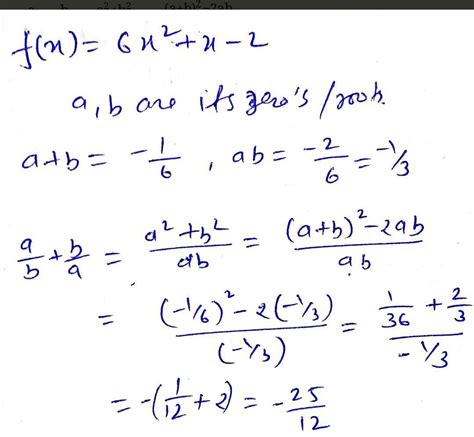 f(x) = 6x² + x - 2
a, b are its zero's / roots.
a+b = -1/6 , ab = -2/6 = -1/3
a/b + b/a = (a² + b²)/ab = ((a+b)² - 2ab)/ab
= ((-1/6)² - 2(-1/3))/(-1/3) = (1/36 + 2/3)/(-1/3)
= -(1/12 + 2) = -25/12